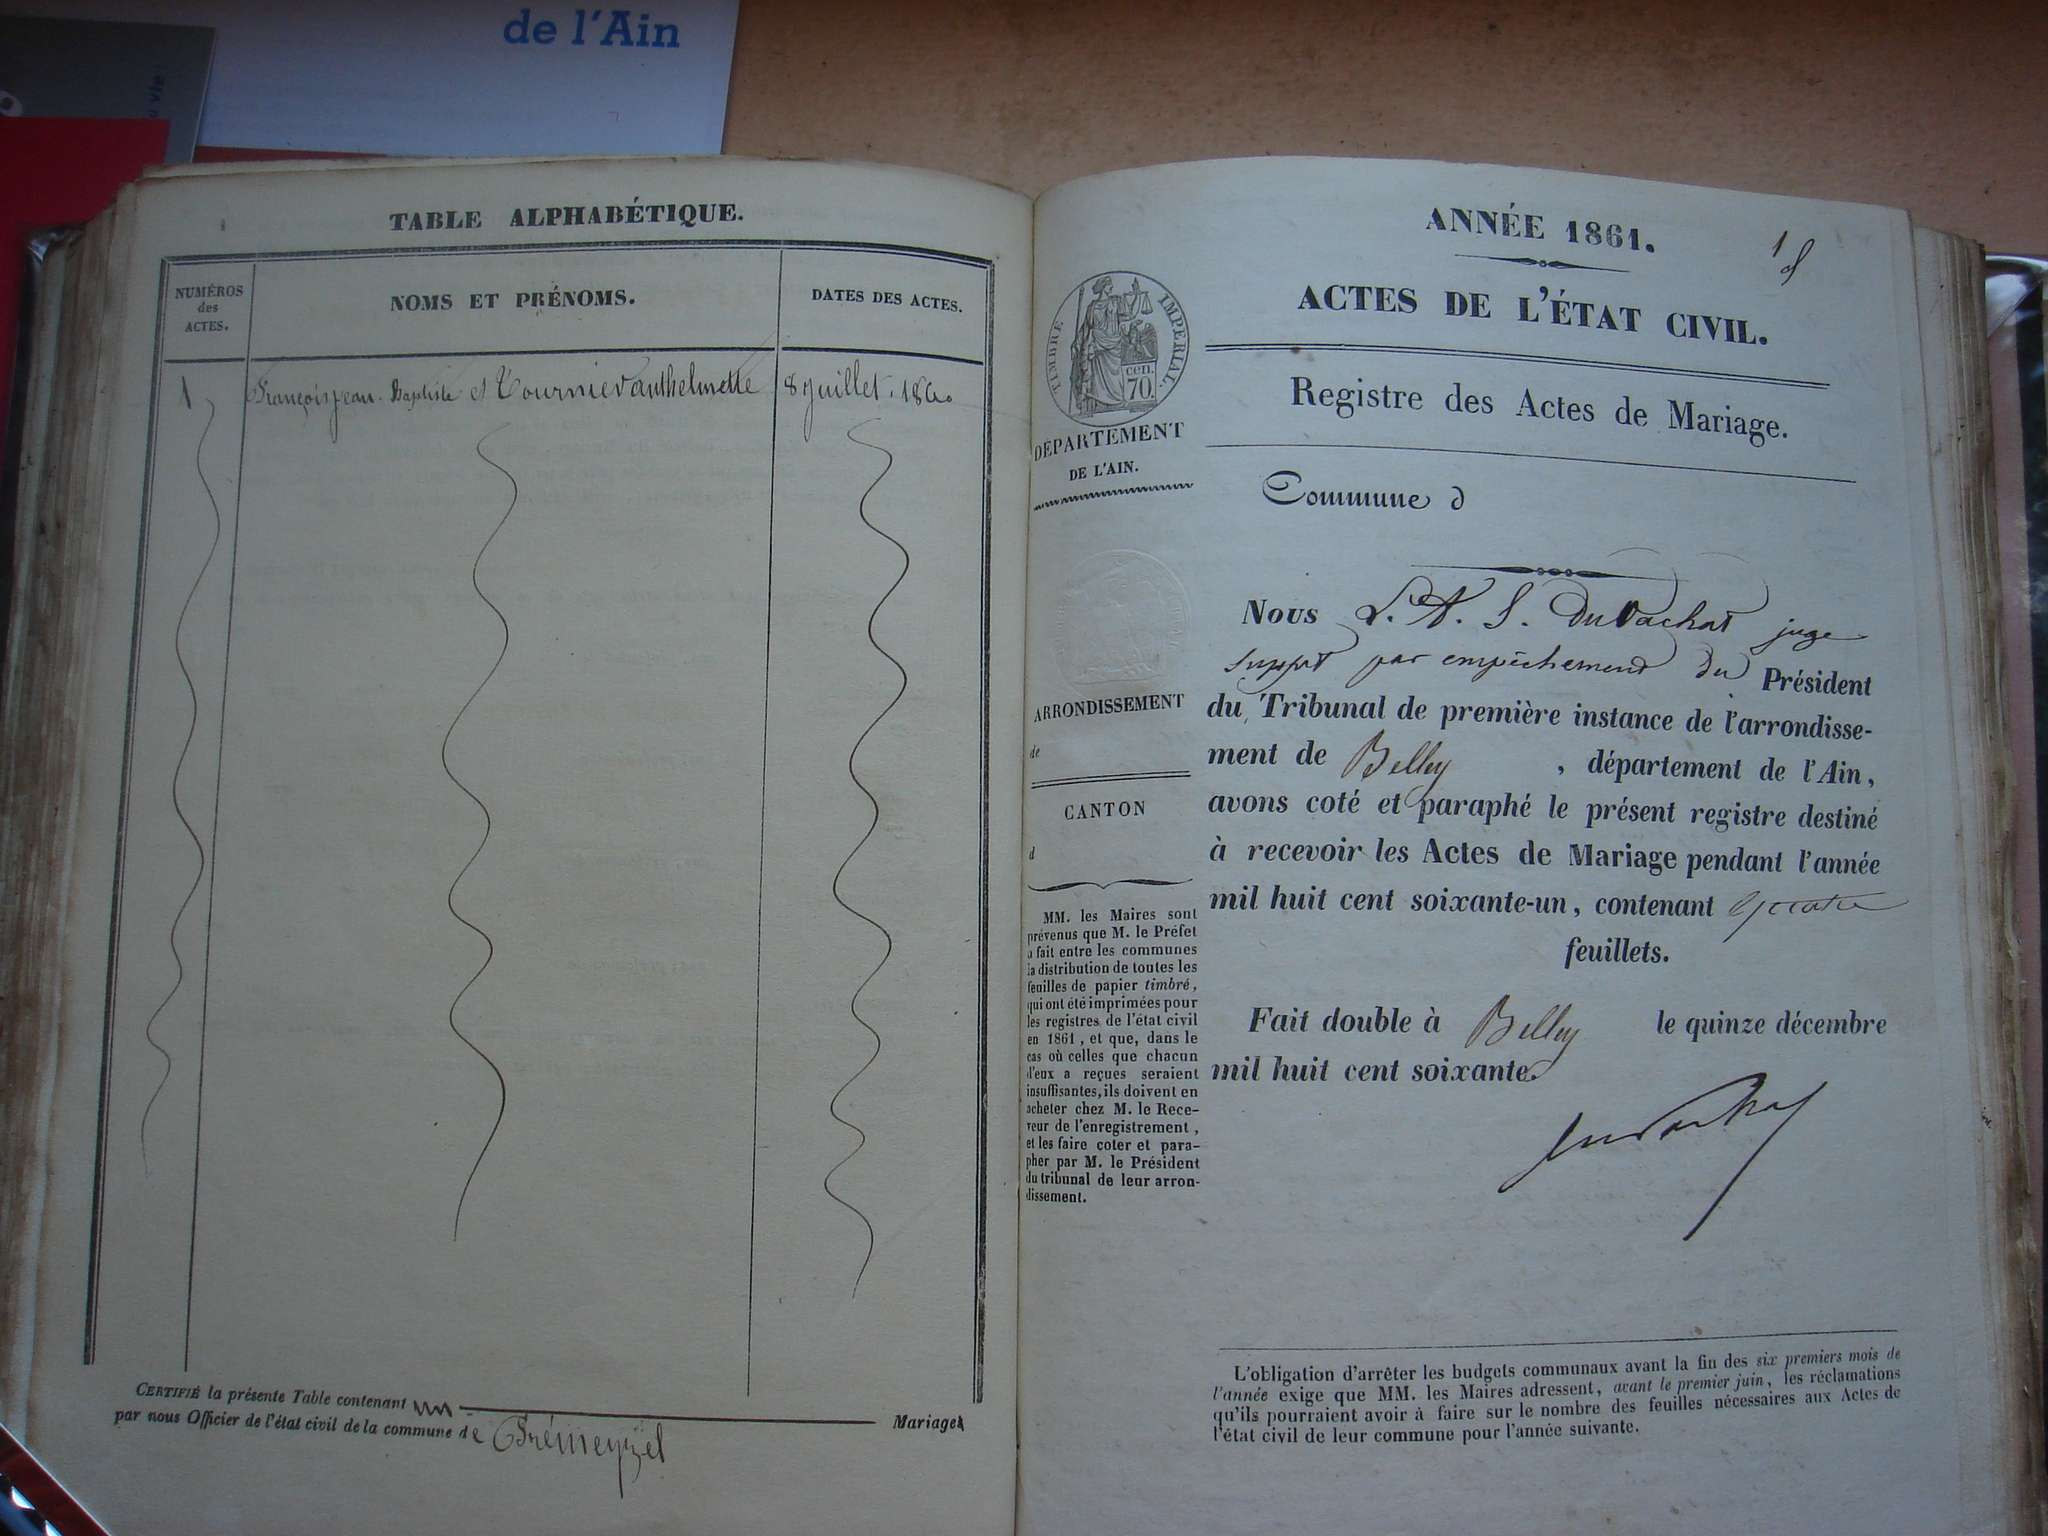 de l'Ain
TABLE ALPHABÉTIQUE.
NUMÉROS
des
ACTES.
NOMS ET PRÉNOMS.
DATES DES ACTES.
1 François Jean-Baptiste et Tournier anthelmette 8 juillet. 1860
CERTIFIÉ la présente Table contenant un Mariage
par nous Officier de l'état civil de la commune de Prémeyzel
ANNÉE 1861.
1
ACTES DE L'ÉTAT CIVIL.
TIMBRE IMPÉRIAL.
cen.
70.
Registre des Actes de Mariage.
DÉPARTEMENT
DE L'AIN.
Commune d
ARRONDISSEMENT
de
CANTON
d
MM. les Maires sont
prévenus que M. le Préfet
a fait entre les communes
la distribution de toutes les
feuilles de papier timbré,
qui ont été imprimées pour
les registres de l'état civil
en 1861, et que, dans le
cas où celles que chacun
d'eux a reçues seraient
insuffisantes, ils doivent en
acheter chez M. le Rece-
veur de l'enregistrement,
et les faire coter et para-
pher par M. le Président
du tribunal de leur arron-
dissement.
Nous L. A. S. Duvachat juge
suppt par empêchement du Président
du Tribunal de première instance de l'arrondisse-
ment de Belley , département de l'Ain,
avons coté et paraphé le présent registre destiné
à recevoir les Actes de Mariage pendant l'année
mil huit cent soixante-un, contenant quatre
feuillets.
Fait double à Belley le quinze décembre
mil huit cent soixante.
Duvachat
L'obligation d'arrêter les budgets communaux avant la fin des six premiers mois de
l'année exige que MM. les Maires adressent, avant le premier juin, les réclamations
qu'ils pourraient avoir à faire sur le nombre des feuilles nécessaires aux Actes de
l'état civil de leur commune pour l'année suivante.